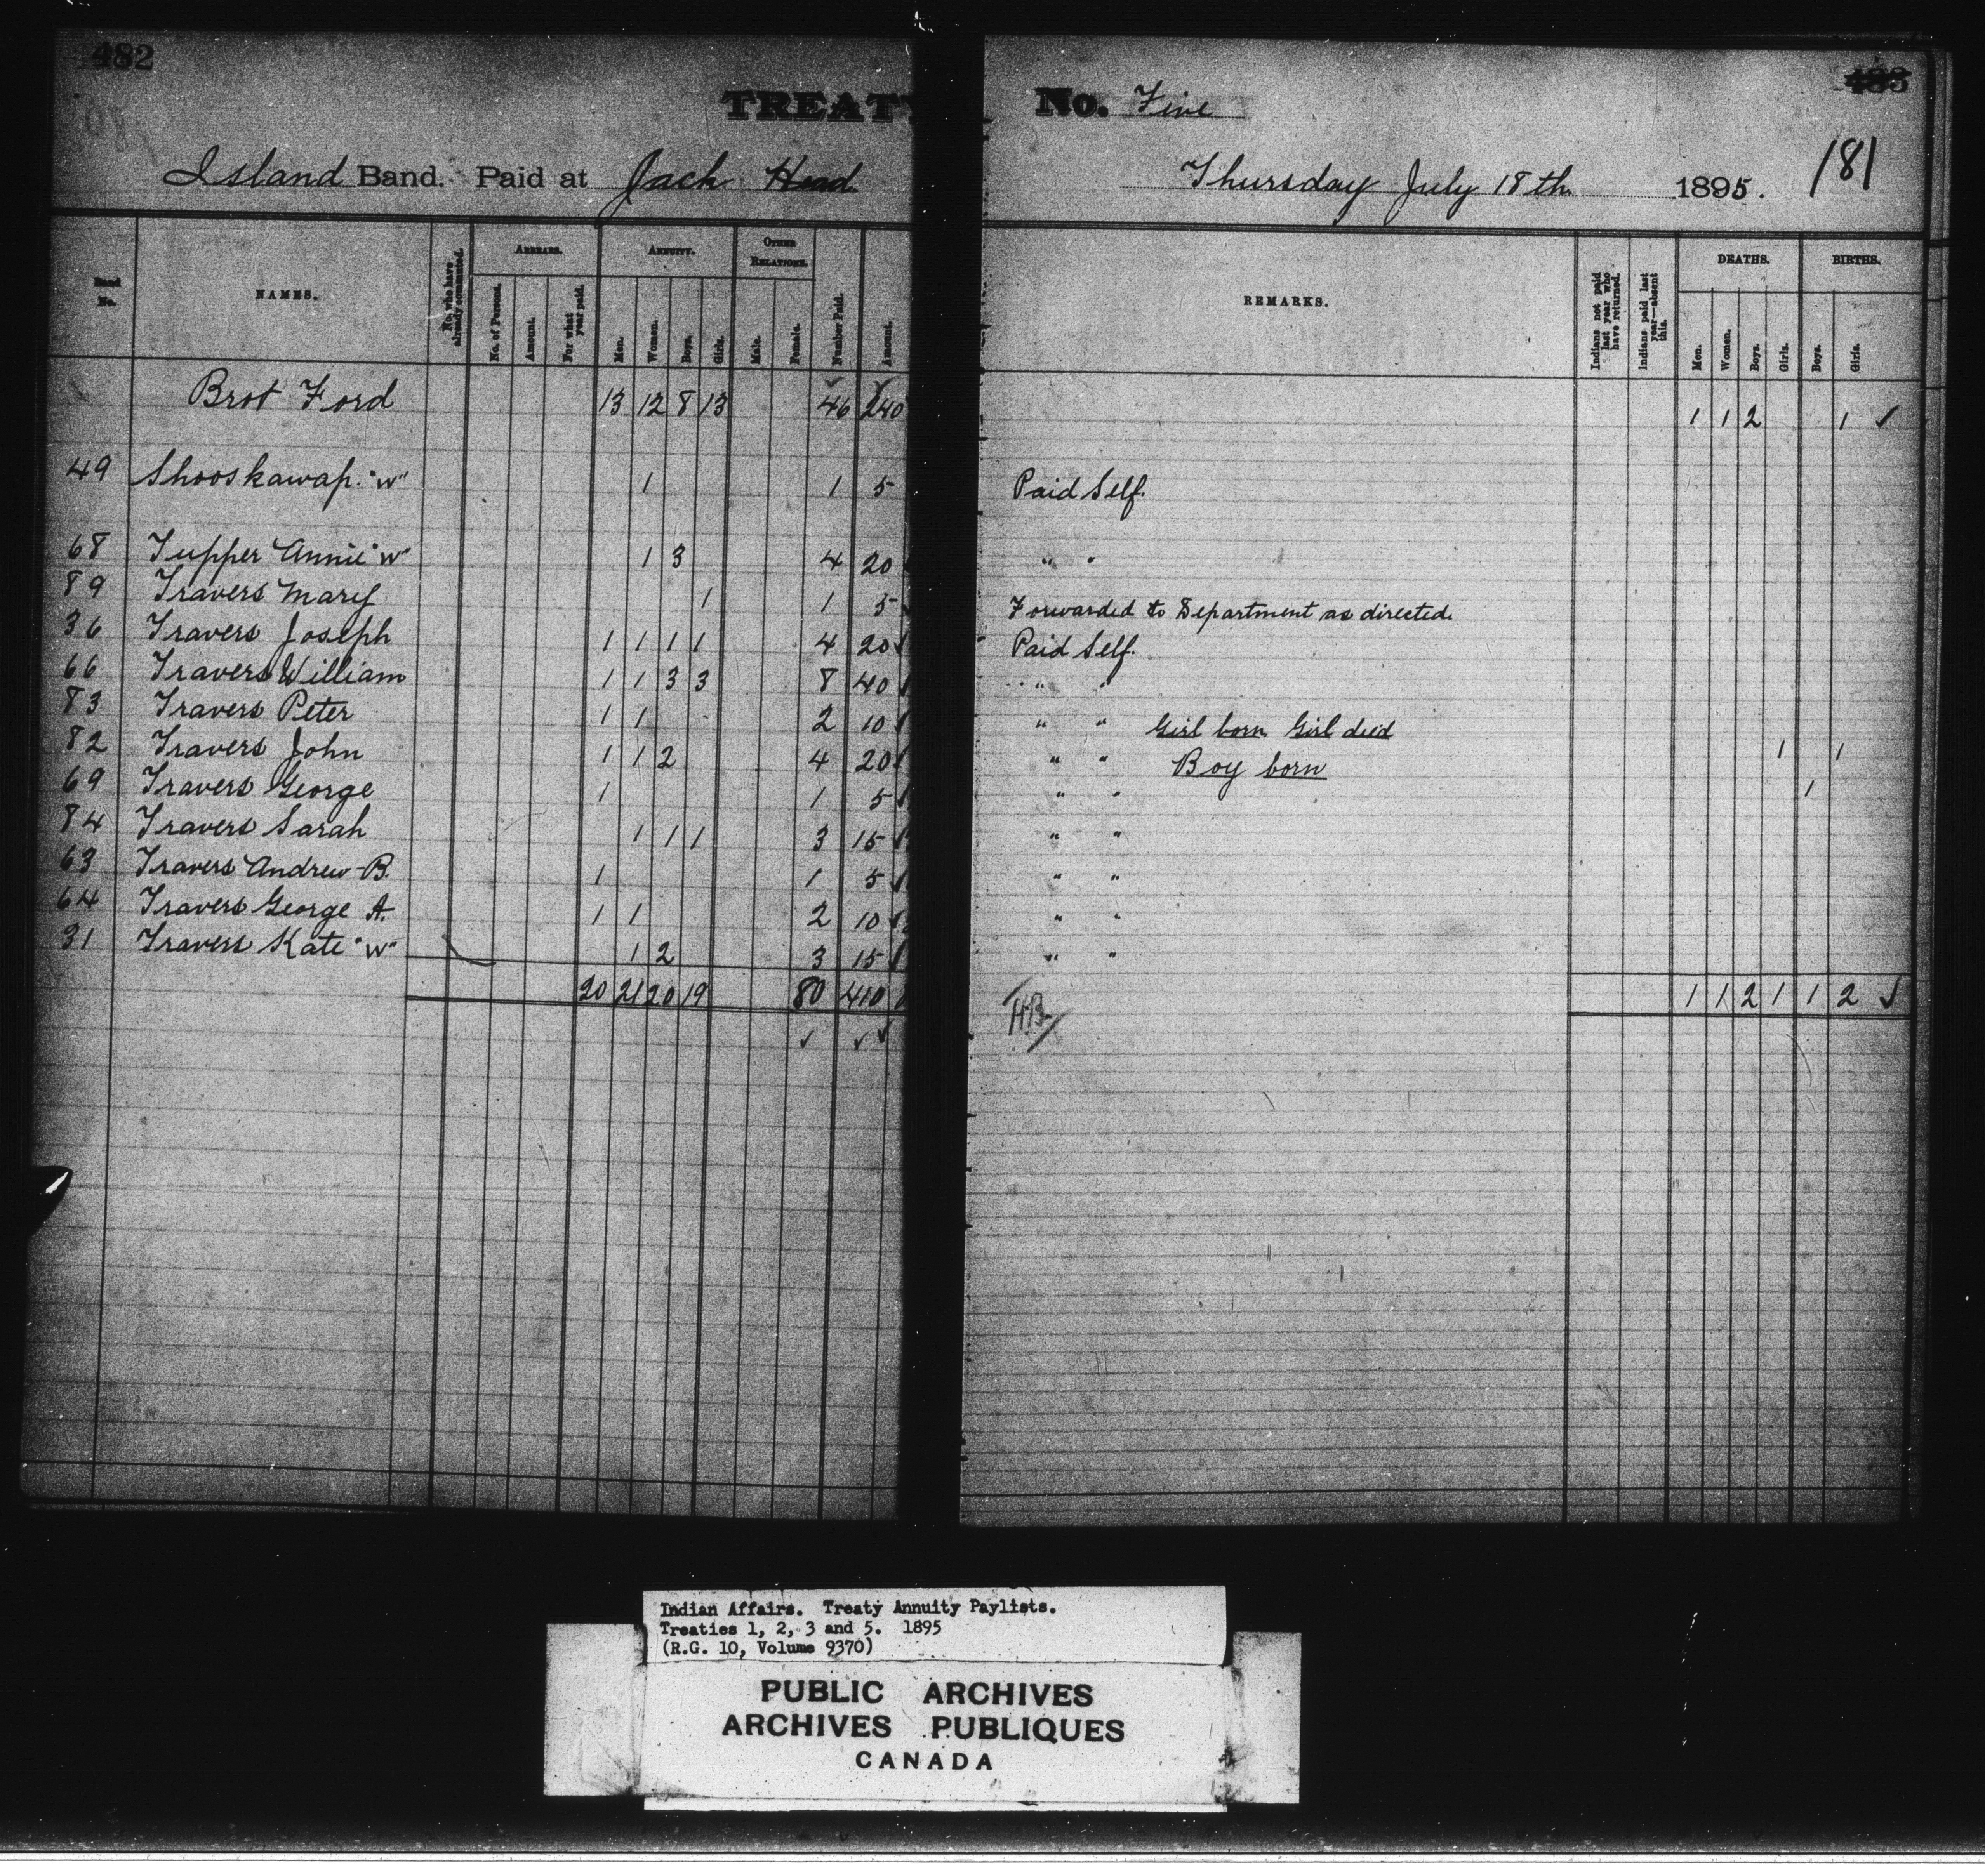 482
483
TREATY No. Five
181
Island Band. Paid at Jack Head Thursday July 18th 1895.
Band No. NAMES. No. who have already commuted. ARREARS. No. of Persons. Amount. For what year paid. ANNUITY. Men. Women. Boys. Girls. OTHER RELATIONS. Male. Female. Number Paid. Amount. REMARKS. Indians not paid last year who have returned. Indians paid last year—absent this. DEATHS. Men. Women. Boys. Girls. BIRTHS. Boys. Girls.
Brot Ford 13 12 8 13 46 240 1 1 2 1 ✓
49 Shooskawap. "W" 1 1 5 Paid Self.
68 Tupper Annie "W" 1 3 4 20 " "
89 Travers Mary 1 1 5 Forwarded to Department as directed.
36 Travers Joseph 1 1 1 1 4 20 ✓ Paid Self.
66 Travers William 1 1 3 3 8 40 ✓ " "
83 Travers Peter 1 1 2 10 ✓ " " Girl born Girl died 1 1
82 Travers John 1 1 2 4 20 ✓ " " Boy born 1
69 Travers George 1 1 5 ✓ " "
84 Travers Sarah 1 1 1 3 15 ✓ " "
63 Travers Andrew B. 1 1 5 ✓ " "
64 Travers George A. 1 1 2 10 ✓ " "
31 Travers Kate "W" 1 2 3 15 ✓ " "
20 21 20 19 80 410 1 1 2 1 1 2 ✓
HB
✓ ✓ ✓
Indian Affairs. Treaty Annuity Paylists.
Treaties 1, 2, 3 and 5. 1895
(R.G. 10, Volume 9370)
PUBLIC ARCHIVES
ARCHIVES PUBLIQUES
CANADA